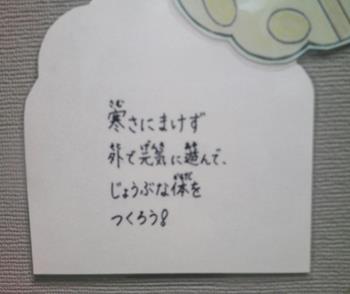 寒さにまけず
外で元気に遊んで、
じょうぶな体を
つくろう!